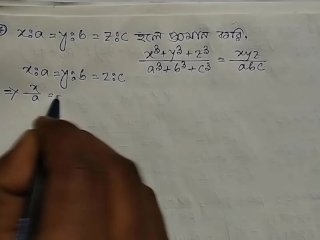 x:a = y:b = z:c হলে প্রমাণ করি,
x³+y³+z³/a³+b³+c³ = xyz/abc
x:a = y:b = z:c
⇒ x/a =